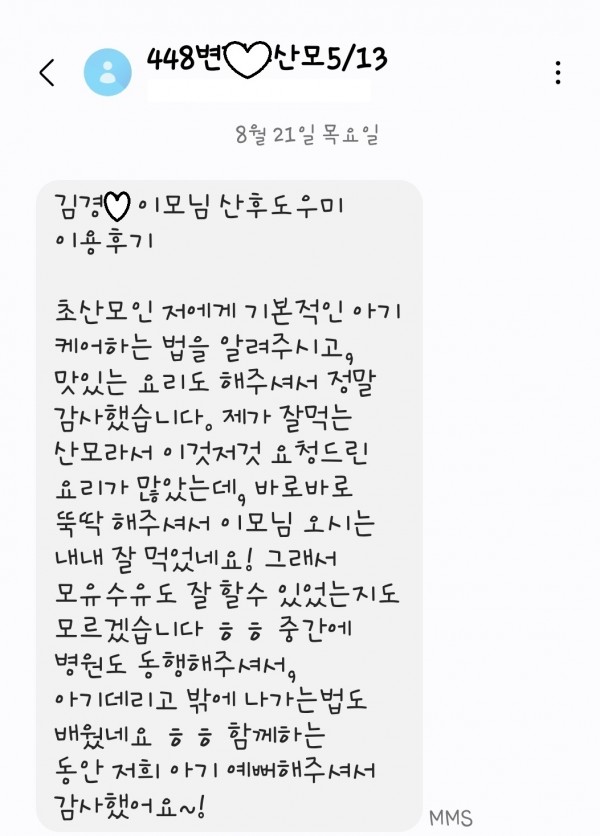 448변♡산모5/13
8월 21일 목요일
김경♡이모님 산후도우미
이용후기
초산모인 저에게 기본적인 아기
케어하는 법을 알려주시고,
맛있는 요리도 해주셔서 정말
감사했습니다. 제가 잘먹는
산모라서 이것저것 요청드린
요리가 많았는데, 바로바로
뚝딱 해주셔서 이모님 오시는
내내 잘 먹었네요! 그래서
모유수유도 잘 할수 있었는지도
모르겠습니다 ㅎㅎ 중간에
병원도 동행해주셔서,
아기데리고 밖에 나가는법도
배웠네요 ㅎㅎ 함께하는
동안 저희 아기 예뻐해주셔서
감사했어요~!
MMS